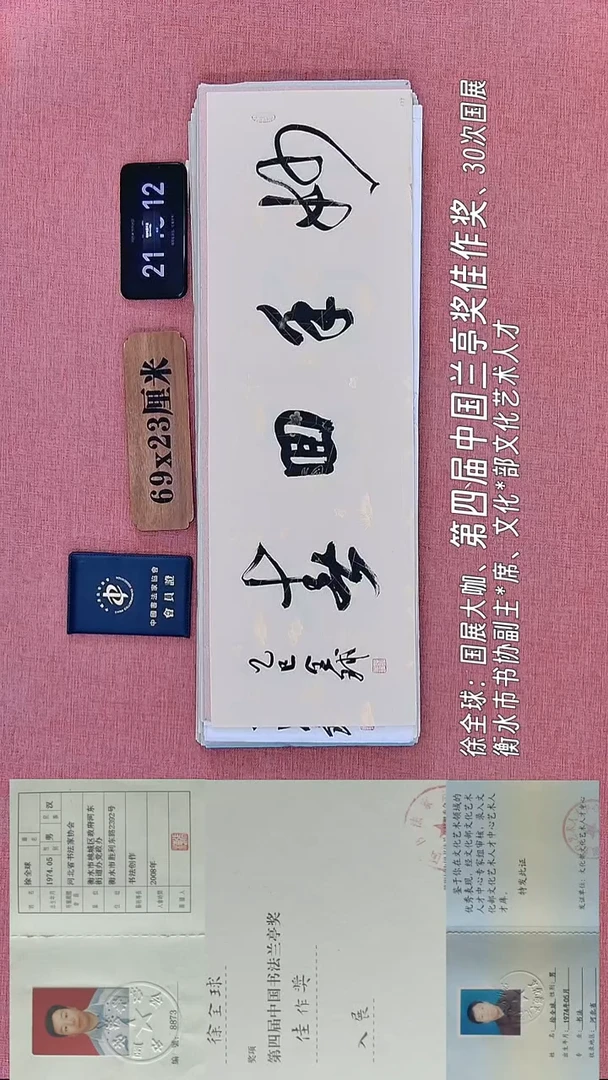 妙手回春
乙巳全球
69x23厘米
中國書法家協會
會員證
徐全球：国展大咖、第四届中国兰亭奖佳作奖、30次国展
衡水市书协副主*席、文化*部文化艺术人才
徐全球
1974.05 男 汉
河北省书法家协会
衡水市桃城区政府河东
街道办党政办
衡水市胜利东路2202号
书法创作
2008年
编 号：8873
徐全球
奖项
第四届中国书法兰亭奖
佳作奖
入展
鉴于你在文化艺术领域的
优秀表现，经文化部文化艺术
人才中心专家组审核，录入文
化部文化艺术人才中心艺术人
才库。
特发此证
发证单位：文化部文化艺术人才中心
姓名：徐全球 性别：男
出生年月：1974年05月
专业：书法